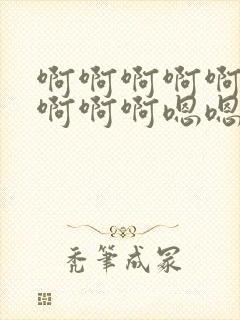 啊啊啊啊啊
啊啊啊嗯嗯
禿筆成冢